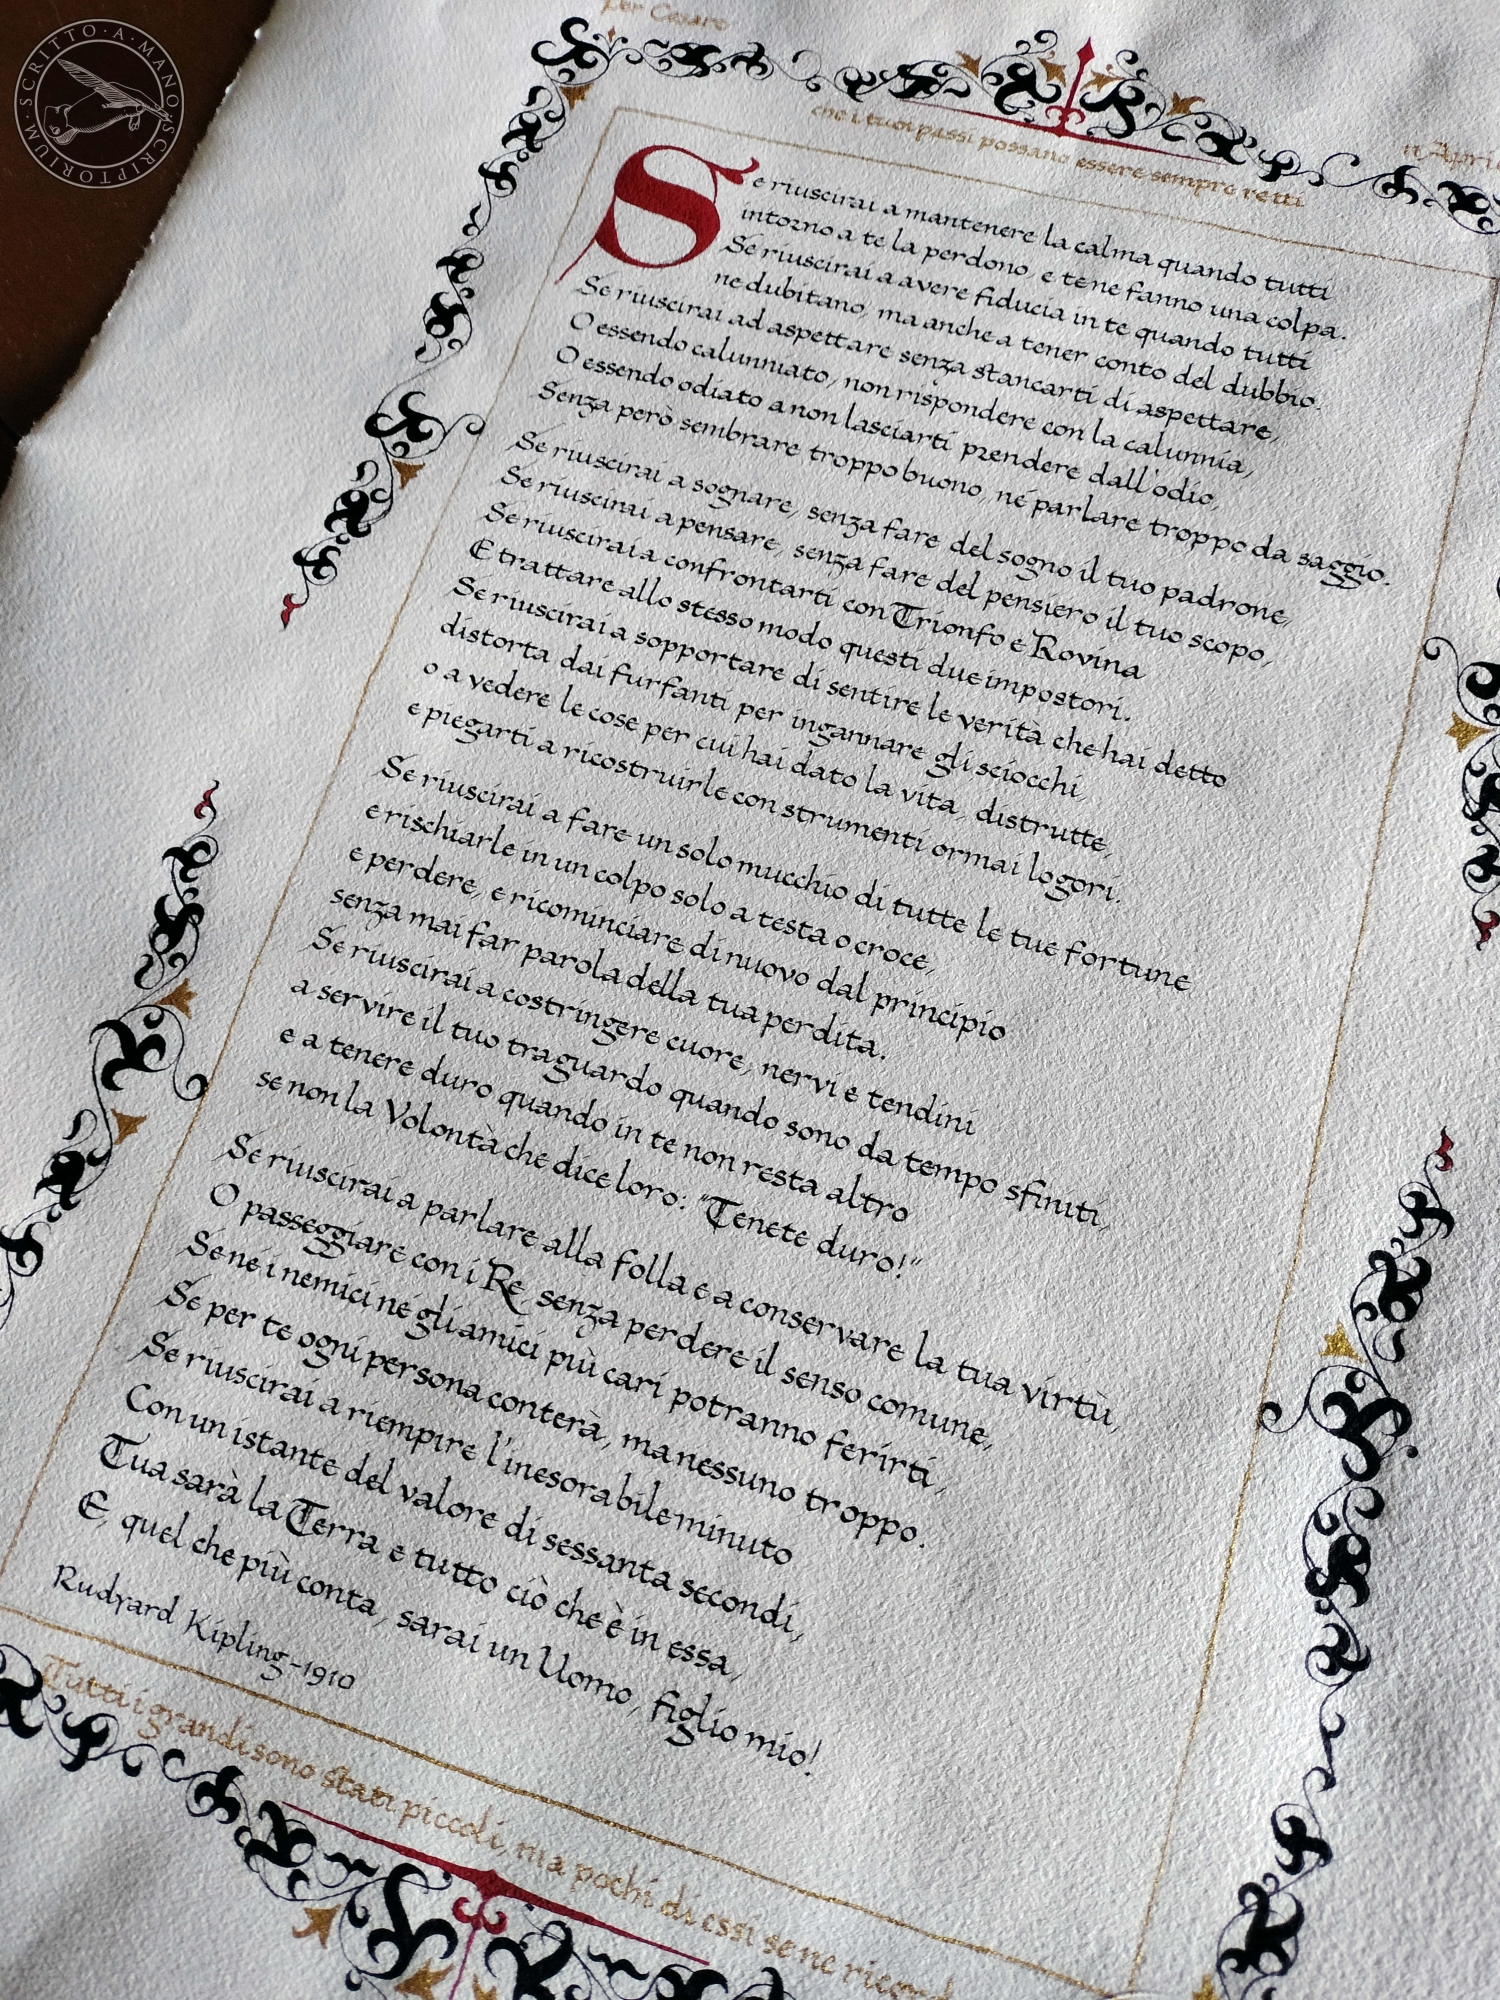 SCRITTO·A·MANO·SCRIPTORIUM
per Cesare
11 Apri
che i tuoi passi possano essere sempre retti
Se riuscirai a mantenere la calma quando tutti
intorno a te la perdono, e te ne fanno una colpa.
Se riuscirai a avere fiducia in te quando tutti
ne dubitano, ma anche a tener conto del dubbio.
Se riuscirai ad aspettare senza stancarti di aspettare,
O essendo calunniato, non rispondere con la calunnia,
O essendo odiato a non lasciarti prendere dall'odio,
Senza però sembrare troppo buono, né parlare troppo da saggio.
Se riuscirai a sognare, senza fare del sogno il tuo padrone,
Se riuscirai a pensare, senza fare del pensiero il tuo scopo,
Se riuscirai a confrontarti con Trionfo e Rovina
E trattare allo stesso modo questi due impostori.
Se riuscirai a sopportare di sentire le verità che hai detto
distorta dai furfanti per ingannare gli sciocchi,
o a vedere le cose per cui hai dato la vita, distrutte,
e piegarti a ricostruirle con strumenti ormai logori.
Se riuscirai a fare un solo mucchio di tutte le tue fortune
e rischiarle in un colpo solo a testa o croce,
e perdere, e ricominciare di nuovo dal principio
senza mai far parola della tua perdita.
Se riuscirai a costringere cuore, nervi e tendini
a servire il tuo traguardo quando sono da tempo sfiniti,
e a tenere duro quando in te non resta altro
se non la Volontà che dice loro: "Tenete duro!"
Se riuscirai a parlare alla folla e a conservare la tua virtù,
O passeggiare con i Re, senza perdere il senso comune,
Se né i nemici né gli amici più cari potranno ferirti,
Se per te ogni persona conterà, ma nessuno troppo.
Se riuscirai a riempire l'inesorabile minuto
Con un istante del valore di sessanta secondi,
Tua sarà la Terra e tutto ciò che è in essa,
E, quel che più conta, sarai un Uomo, figlio mio!
Rudyard Kipling-1910
Tutti i grandi sono stati piccoli, ma pochi di essi se ne ricord